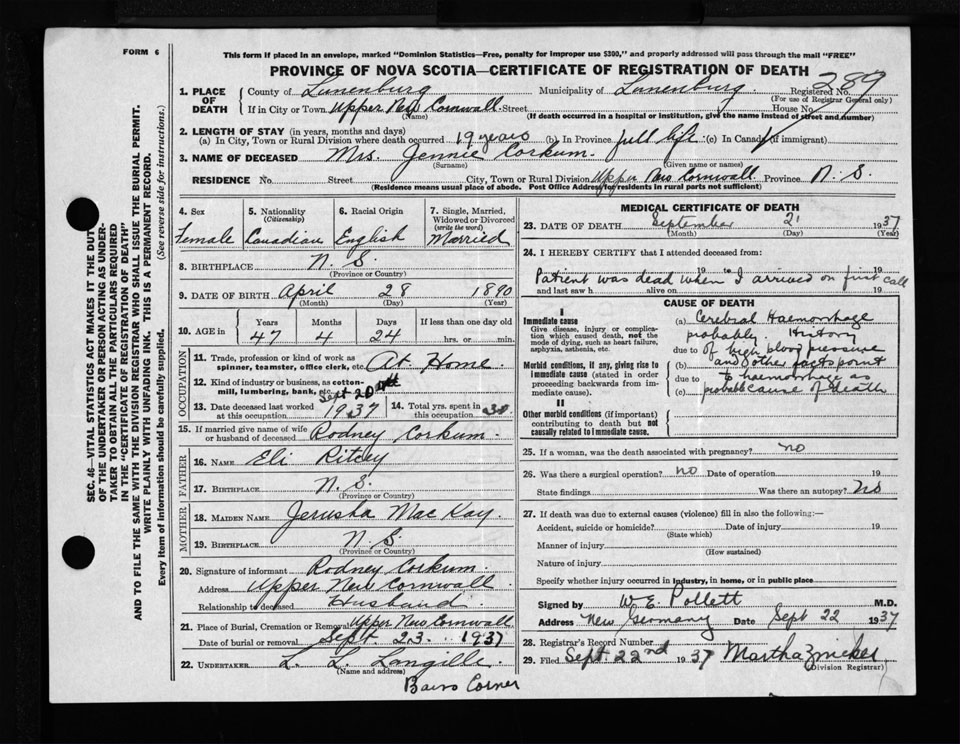 FORM 6
This form if placed in an envelope, marked "Dominion Statistics—Free, penalty for improper use $300," and properly addressed will pass through the mail "FREE"
PROVINCE OF NOVA SCOTIA—CERTIFICATE OF REGISTRATION OF DEATH
SEC. 46—VITAL STATISTICS ACT MAKES IT THE DUTY
OF THE UNDERTAKER OR PERSON ACTING AS UNDER-
TAKER TO OBTAIN ALL THE PARTICULARS REQUIRED
IN THE "CERTIFICATE OF REGISTRATION OF DEATH"
AND TO FILE THE SAME WITH THE DIVISION REGISTRAR WHO SHALL ISSUE THE BURIAL PERMIT.
WRITE PLAINLY WITH UNFADING INK. THIS IS A PERMANENT RECORD.
Every item of information should be carefully supplied. (See reverse side for instructions.)
1. PLACE OF DEATH
County of Lunenburg Municipality of Lunenburg Registered No. 289
(For use of Registrar General only)
If in City or Town Upper New Cornwall Street House No.
(Name) (If death occurred in a hospital or institution, give the name instead of street and number)
2. LENGTH OF STAY (in years, months and days)
(a) In City, Town or Rural Division where death occurred 19 years (b) In Province full life (c) In Canada (if immigrant)
3. NAME OF DECEASED Mrs. Jennie Corkum.
(Surname) (Given name or names)
RESIDENCE No. Street City, Town or Rural Division Upper New Cornwall Province N. S.
(Residence means usual place of abode. Post Office Address for residents in rural parts not sufficient)
4. Sex Female
5. Nationality (Citizenship) Canadian
6. Racial Origin English
7. Single, Married, Widowed or Divorced (write the word) Married
8. BIRTHPLACE N. S.
(Province or Country)
9. DATE OF BIRTH April 28 1890
(Month) (Day) (Year)
10. AGE in Years Months Days If less than one day old
47 4 24 hrs. or min.
OCCUPATION
11. Trade, profession or kind of work as spinner, teamster, office clerk, etc. At Home.
12. Kind of industry or business, as cotton-mill, lumbering, bank, etc.
13. Date deceased last worked at this occupation Sept 20 1937
14. Total yrs. spent in this occupation 30
15. If married give name of wife or husband of deceased Rodney Corkum.
FATHER
16. NAME Eli Ritcey
17. BIRTHPLACE N. S.
(Province or Country)
MOTHER
18. MAIDEN NAME Jerusha Mac Kay.
19. BIRTHPLACE N. S.
(Province or Country)
20. Signature of informant Rodney Corkum.
Address Upper New Cornwall.
Relationship to deceased Husband.
21. Place of Burial, Cremation or Removal Upper New Cornwall
Date of burial or removal Sept. 23. 1937
22. UNDERTAKER L. L. Langille.
(Name and address)
MEDICAL CERTIFICATE OF DEATH
23. DATE OF DEATH September 21 1937
(Month) (Day) (Year)
24. I HEREBY CERTIFY that I attended deceased from:
19 to 19
Patient was dead when I arrived on first call
and last saw h alive on 19
CAUSE OF DEATH
I
Immediate cause
Give disease, injury or complication which caused death, not the mode of dying, such as heart failure, asphyxia, asthenia, etc.
(a) Cerebral Haemorrhage
probably. History
due to of high blood pressure
Morbid conditions, if any, giving rise to immediate cause (stated in order proceeding backwards from immediate cause).
(b) and other facts point
due to to haemorrhage as
(c) probable cause of death
II
Other morbid conditions (if important) contributing to death but not causally related to immediate cause.
25. If a woman, was the death associated with pregnancy? no
26. Was there a surgical operation? no Date of operation 19
State findings Was there an autopsy? no
27. If death was due to external causes (violence) fill in also the following:—
Accident, suicide or homicide? Date of injury 19
(State which)
Manner of injury
(How sustained)
Nature of injury
Specify whether injury occurred in industry, in home, or in public place
Signed by W E. Pollett M.D.
Address New Germany Date Sept 22 1937
28. Registrar's Record Number
29. Filed Sept. 22nd 1937 Martha Zwicker
(Division Registrar)